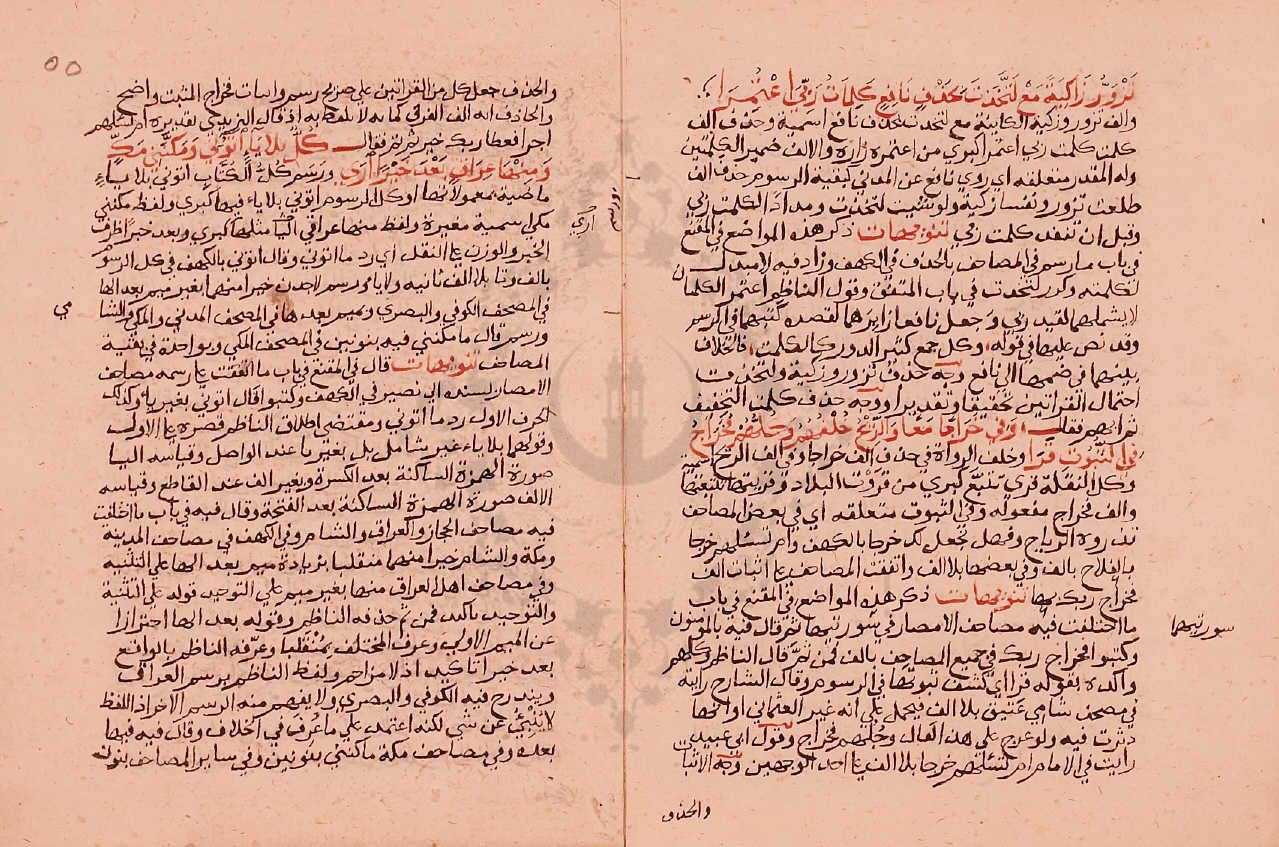 تزور زاكية مع لتخذت بحذف نافع كلمات ربي اعتمرا
والف تزور وزكية الكاينة مع لتخذت بحذف نافع اسمية وحذف الف
كلمت كلمت ربي اعتمر اكبري من اعتمره زاره والالف ضمير الكلمتين
وله المقدر متعلقه اي روي نافع عن المدني كبقية الرسوم حذف الف
طلعت تزور ونفسا زكية ولو شيت لتخذت ومدادا لكلمت ربي
وقبل ان تنفد كلمت ربي تنويهات ذكر هذه المواضع في المقنع
في باب ما رسم في المصاحف بالحذف في الكهف وزاد فيه لا مبدل
لكلمته وكرر لتخذت في باب المتفق وقول الناظم اعتمر الكلمات
لا يشملهما لقيد ربي وجعل نافعا زايرهما لقصده كتبهما في الرسم
وقد نص عليها في قوله وكل جمع كثير الدور كالكلمت فالخلاف
بينهما في ضمها الي نافع وجه حذف تزور وزكية ولتخذت
احتمال القراتين تحقيقا وتقديرا ووجه حذف كلمت التخفيف
ثم الجمهم فقال وفي خراجا معا والريح خلفهم وكلهم فخراج
في الثبوت قرا وخلف الرواة في حذف الف خراجا وفي الف الريح اسمية
وكل النقلة قري تتبع كبري من قروت البلاد وقريتها تتبعتها
والف فخراج مفعوله وفي الثبوت متعلقه اي في بعض المصاحف
تذروه الرياح وفهل نجعل لك خرجا بالكهف وام تسئلهم خرجا
بالفلاح بالف وفي بعضها بلا الف واتفقت المصاحف علي اثبات الف
فخراج ربك بها تنويهات ذكر هذه المواضع في المقنع في باب
ما اختلفت فيه مصاحف الامصار في سورتيها ثم قال فيه بالمومنون
وكتبوا فخراج ربك في جميع المصاحف بالف فمن ثم قال الناظم وكلهم
واكده بقوله قرا اي كشف ثبوتها في الرسوم وقال الشارح رايته
في مصحف شامي عتيق بلا الف فيحمل علي انه غير العثماني او انها
دثرت فيه ولو عرج علي هذا لقال وجلهم فخراج وقول ابي عبيد
رايت في الامام ام تسئلهم خرجا بلا الف علي احد الوجهين وجه الاثبات
والحذف
سورتيهما
والحذف جعل كل من القراتين علي صريح رسم واثبات فخراج المثبت واضح
والحاذف انه الف الفرق كما به لا تلفظ به اذ قال اليزيدي تقديره ام تسئلهم
اجرا فعطا ربك خير ثم ثم قال كل بلا يا اتوني ومكنني مك
ومنها عراق بعد خيرا اري ورسم كل الكتاب اتوني بلا ياء
ماضية بمعمولاتها او كل المرسوم اتوني بلا ياء فيها كبري ولفظ مكنني
مكرا اسمية مغيرة ولفظ منها عراقي الياء مثلها كبري وبعد خيرا ظرف
الخير والوزن علي النقل اي رد ما اتوني وقال اتوني بالكهف في كل الرسوم
بالف وتا بلا الف ثانيه ولا يا ورسم لاجدن خيرا منهما بغير ميم بعد الها
في المصحف الكوفي والبصري وميم بعد ها في المصحف المدني والمكي والشا مي
ورسم قال ما مكنني فيه بنونين في المصحف المكي وبواحدة في بقية
المصاحف تنويهات قال في المقنع في باب ما اتفقت علي رسمه مصاحف
الامصار بسنده الي نصير في الكهف وكتبوا قال اتوني بغير ياء وكذلك
الحرف الاول ردما اتوني ومقتضي اطلاق الناظم قصره علي الاول
وقولهما بلا ياء غير شامل بل بغير يا عند الواصل وقياسه اليا
صورة الهمزة الساكنة بعد الكسرة وبغير الف عند القاطع وقياسه
الالف صورة الهمزة الساكنة بعد الفتحة وقال فيه في باب ما اختلفت
فيه مصاحف الحجاز والعراق والشام وفي الكهف في مصاحف المدينة
ومكة والشام خيرا منهما منقلبا بزيادة ميم بعد الها علي التثنية
وفي مصاحف اهل العراق منها بغير ميم علي التوحيد قوله علي التثنية
والتوحيد تاكيد فمن ثم حذفه الناظم وقوله بعد الها احترازا
عن الميم الاولي وعرف المختلف بمنقلبا وعرفه الناظم بالواقع
بعد خيرا تاكيد اذ لا مزاحم ولفظ الناظم برسم العراق
ويندرج فيه الكوفي والبصري ولا يفهم منه الرسم الاخر اذ اللفظ
لا ينبي عن شي لكنه اعتمد علي ما عرف في الخلاف وقال فيه فيها
بعده وفي مصاحف مكة ما مكنني بنونين وفي ساير المصاحف بنون
اري